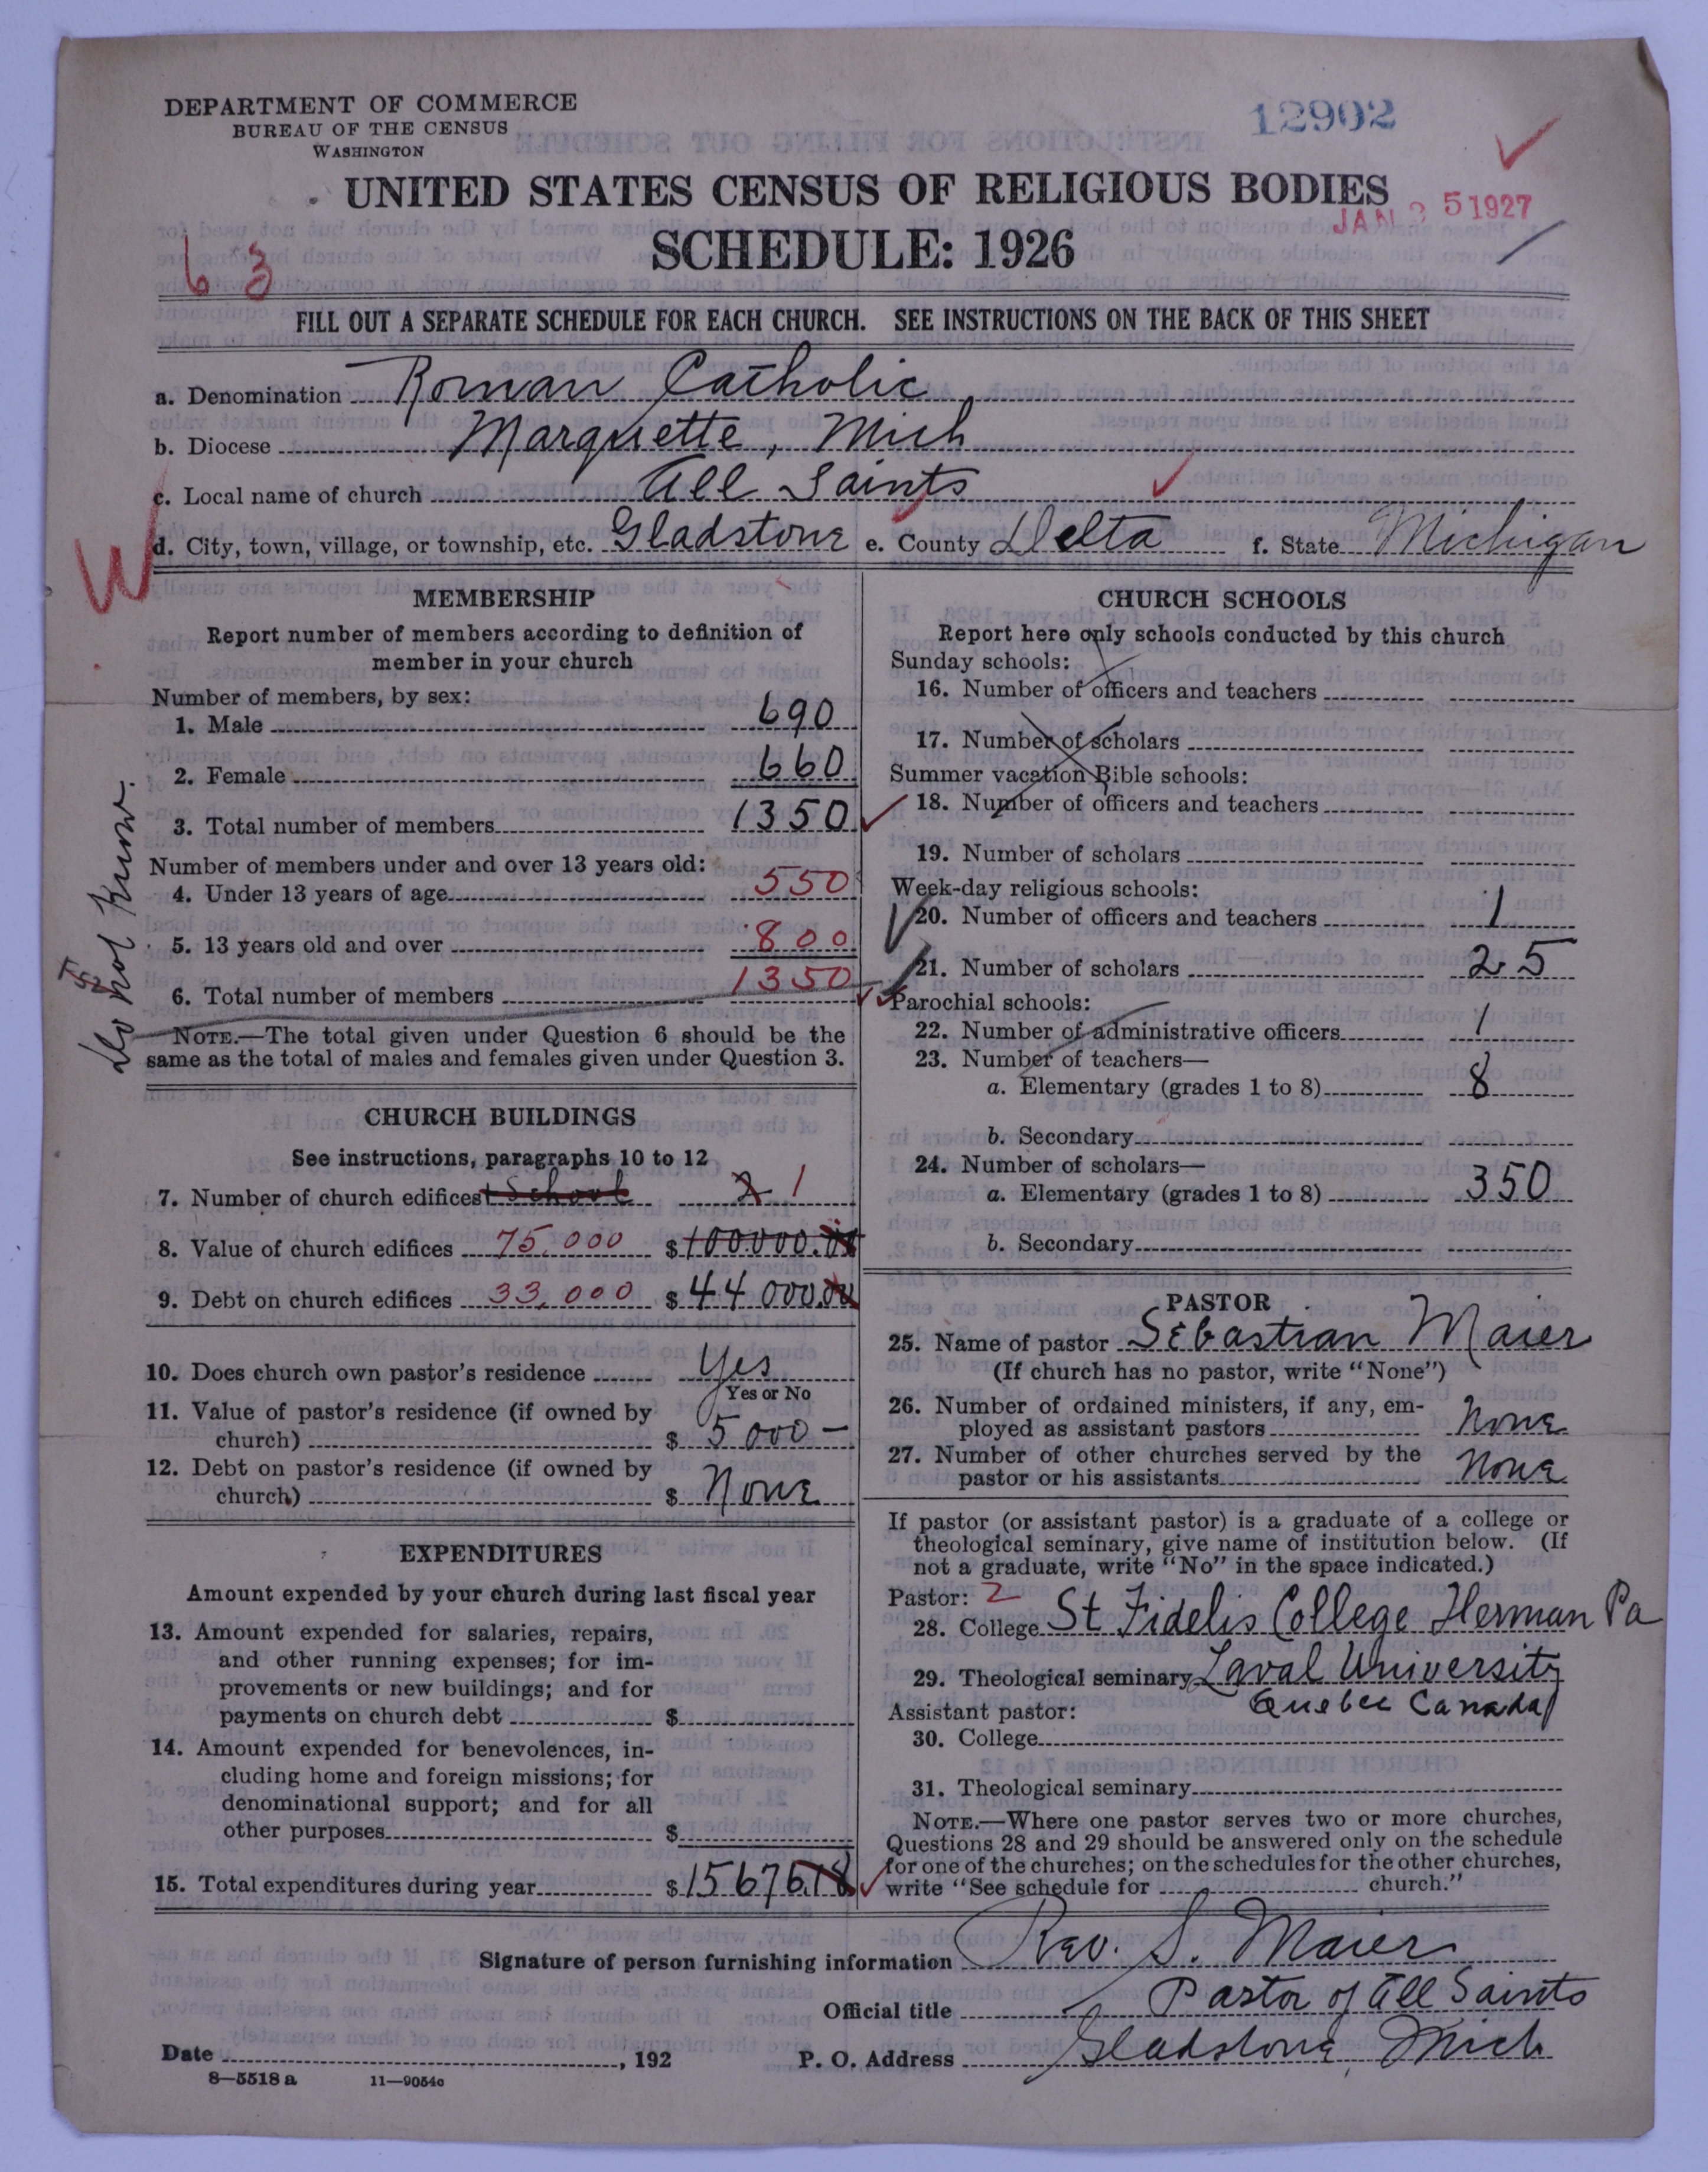 DEPARTMENT OF COMMERCE
BUREAU OF THE CENSUS
WASHINGTON
12902
UNITED STATES CENSUS OF RELIGIOUS BODIES
JAN 25 1927
SCHEDULE: 1926
63
FILL OUT A SEPARATE SCHEDULE FOR EACH CHURCH. SEE INSTRUCTIONS ON THE BACK OF THIS SHEET
a. Denomination Roman Catholic
b. Diocese Marquette, Mich
c. Local name of church All Saints
d. City, town, village, or township, etc. Gladstone e. County Delta f. State Michigan
W
MEMBERSHIP
Report number of members according to definition of
member in your church
Number of members, by sex:
1. Male 690
2. Female 660
3. Total number of members 1350
Number of members under and over 13 years old:
4. Under 13 years of age 550
5. 13 years old and over 800
6. Total number of members 1350
Do not know.
NOTE.—The total given under Question 6 should be the
same as the total of males and females given under Question 3.
CHURCH BUILDINGS
See instructions, paragraphs 10 to 12
7. Number of church edifices + School 2 1
8. Value of church edifices 75,000 $ 100000.00
9. Debt on church edifices 33,000 $ 44000.00
10. Does church own pastor's residence Yes
Yes or No
11. Value of pastor's residence (if owned by
church) $ 5000 —
12. Debt on pastor's residence (if owned by
church) $ None
EXPENDITURES
Amount expended by your church during last fiscal year
13. Amount expended for salaries, repairs,
and other running expenses; for im-
provements or new buildings; and for
payments on church debt $
14. Amount expended for benevolences, in-
cluding home and foreign missions; for
denominational support; and for all
other purposes $
15. Total expenditures during year $ 15676.18
CHURCH SCHOOLS
Report here only schools conducted by this church
Sunday schools:
16. Number of officers and teachers
17. Number of scholars
Summer vacation Bible schools:
18. Number of officers and teachers
19. Number of scholars
Week-day religious schools:
20. Number of officers and teachers 1
21. Number of scholars 25
Parochial schools:
22. Number of administrative officers 1
23. Number of teachers—
a. Elementary (grades 1 to 8) 8
b. Secondary
24. Number of scholars—
a. Elementary (grades 1 to 8) 350
b. Secondary
PASTOR
25. Name of pastor Sebastian Maier
(If church has no pastor, write "None")
26. Number of ordained ministers, if any, em-
ployed as assistant pastors None
27. Number of other churches served by the
pastor or his assistants None
If pastor (or assistant pastor) is a graduate of a college or
theological seminary, give name of institution below. (If
not a graduate, write "No" in the space indicated.)
Pastor: 2
28. College St Fidelis College Herman Pa
29. Theological seminary Laval University
Quebec Canada
Assistant pastor:
30. College
31. Theological seminary
NOTE.—Where one pastor serves two or more churches,
Questions 28 and 29 should be answered only on the schedule
for one of the churches; on the schedules for the other churches,
write "See schedule for church."
Signature of person furnishing information Rev. S. Maier
Official title Pastor of All Saints
Date , 192 P. O. Address Gladstone, Mich
8—5518 a 11—9054c